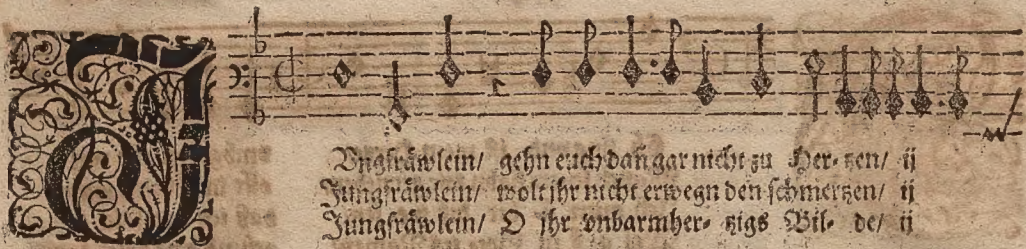 JVngfräwlein/ gehn euch dañ gar nicht zu Her- tzen/ ij
Jungfräwlein/ wolt jhr nicht erwegn den schmertzen/ ij
Jungfräwlein/ O jhr vnbarmher- tzigs Bil- de/ ij